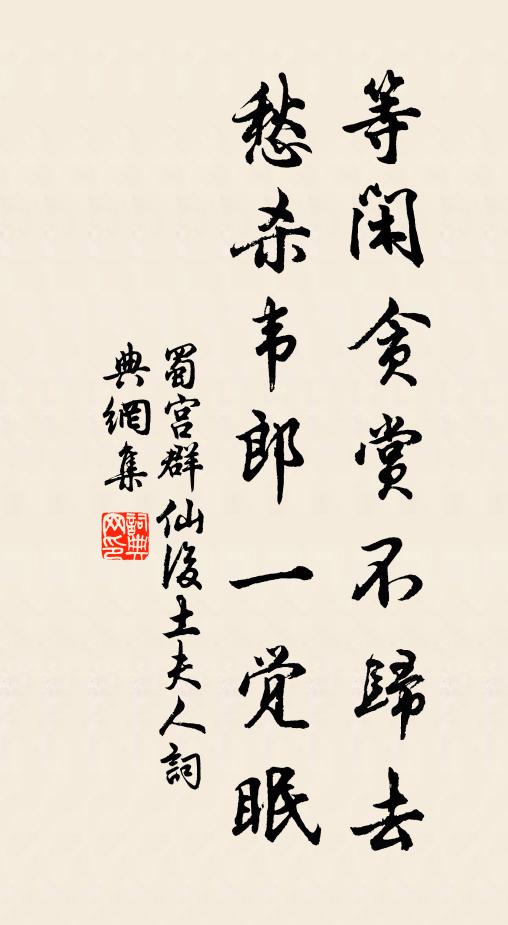 等闲贪赏不歸去
愁杀韦郎一觉眠
蜀宫群仙後土夫人詞
典網集
詞典網印